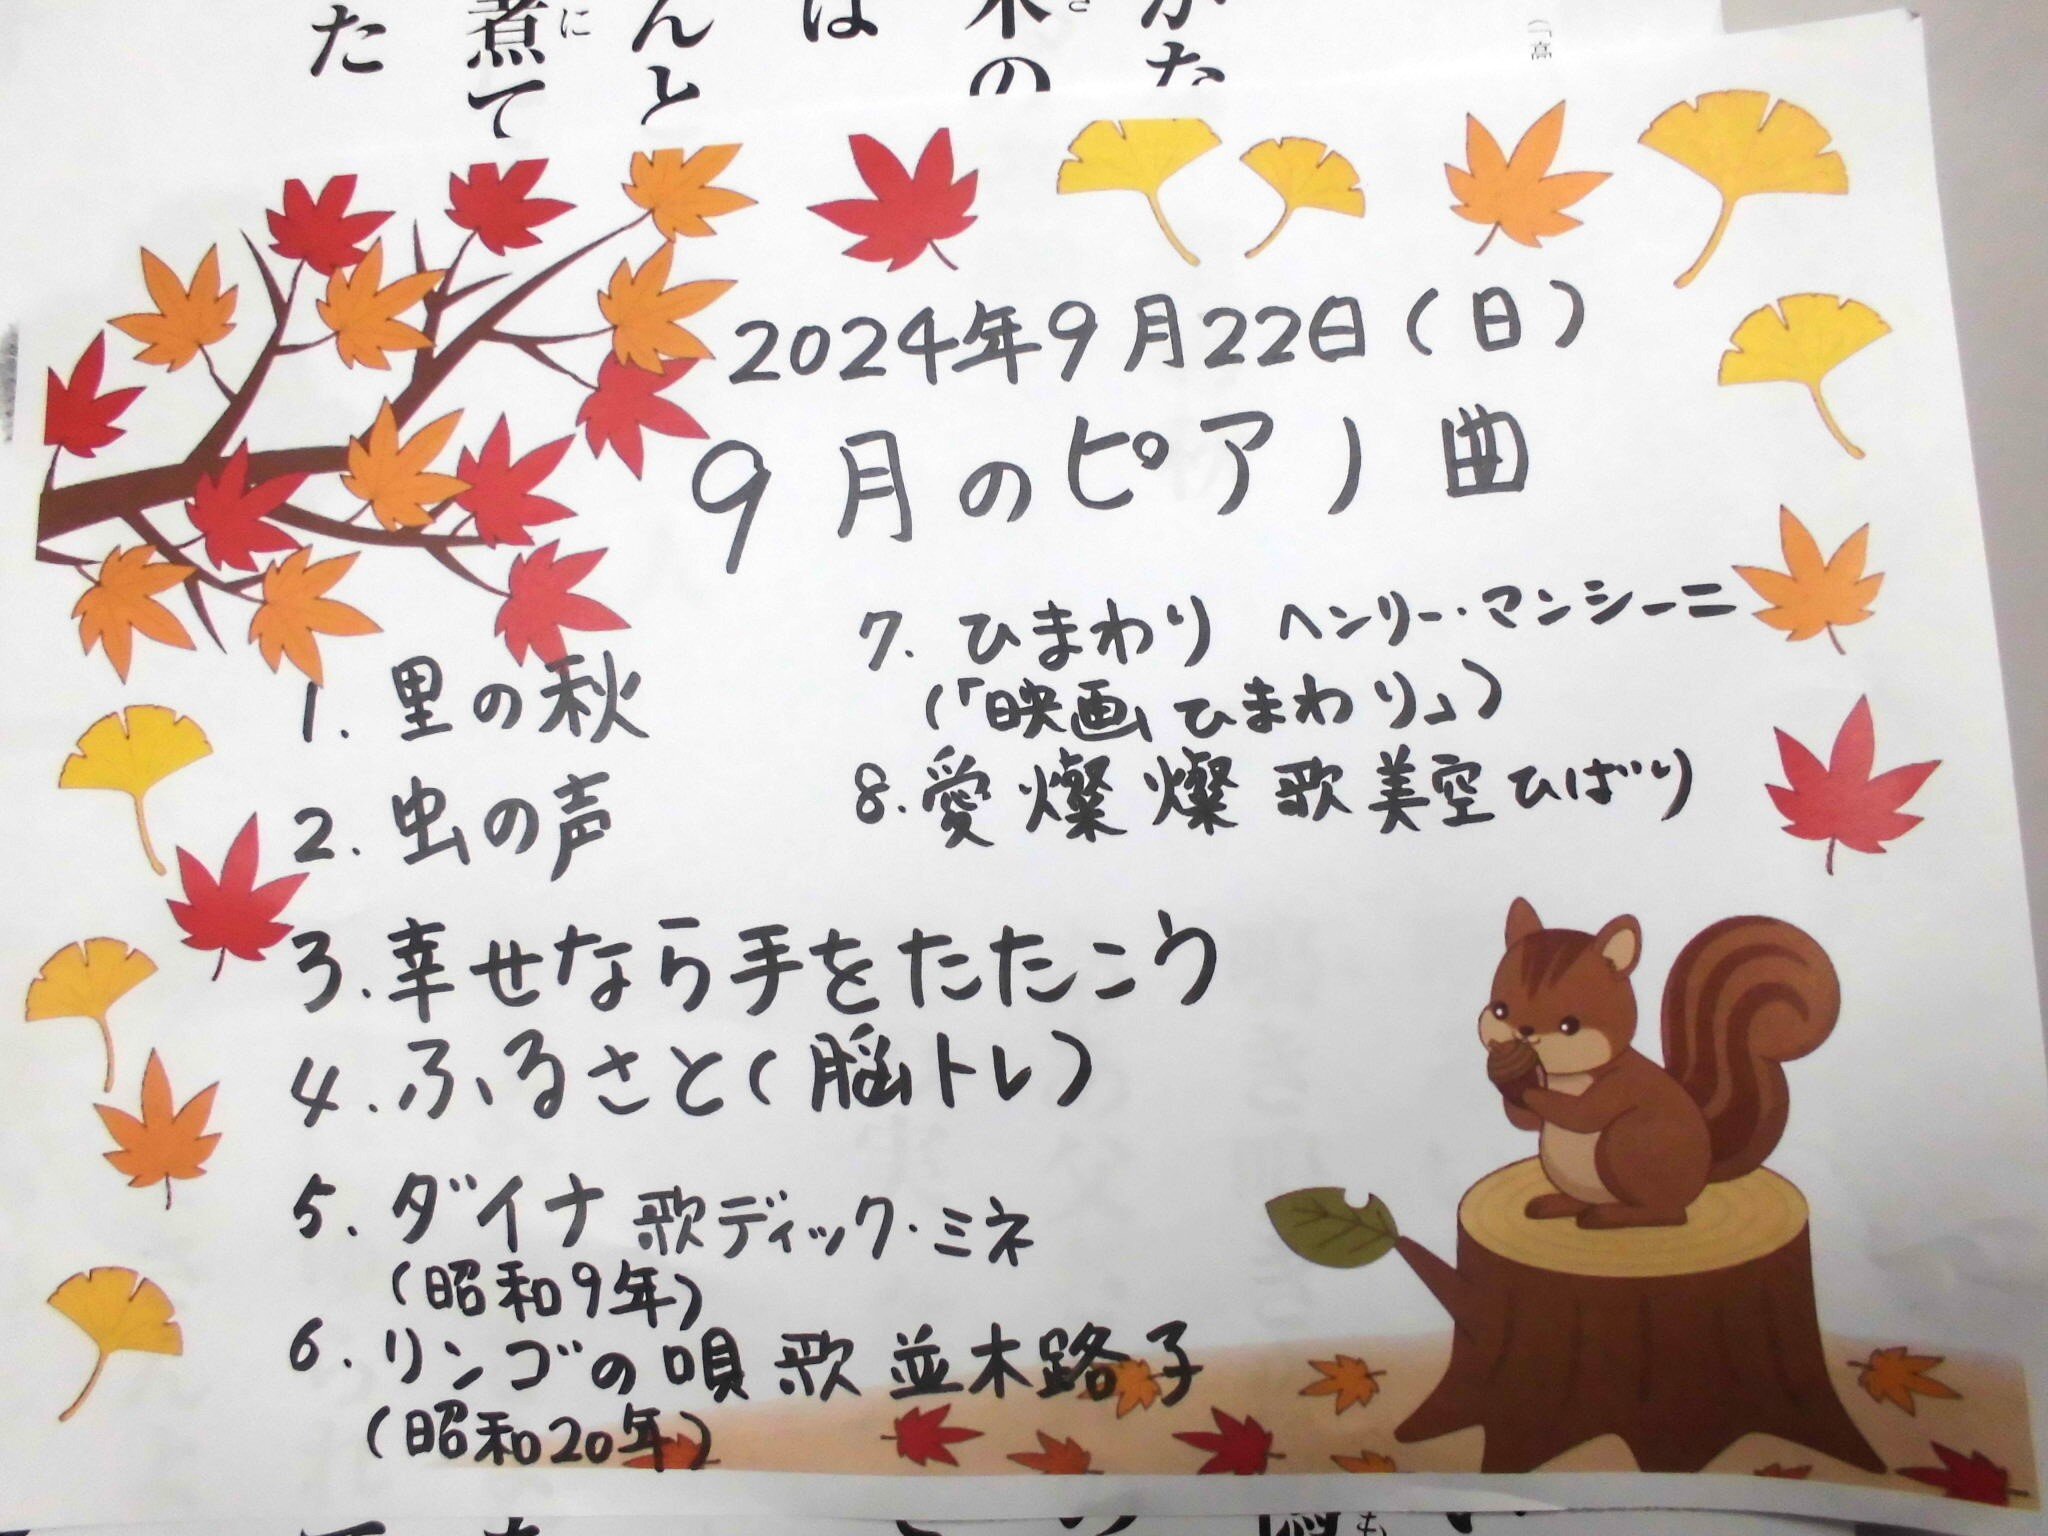 2024年9月22日(日)
9月のピアノ曲
1. 里の秋
2. 虫の声
3. 幸せなら手をたたこう
4. ふるさと(脳トレ)
5. ダイナ 歌ディック・ミネ
(昭和9年)
6. リンゴの唄 歌 並木路子
(昭和20年)
7. ひまわり ヘンリー・マンシーニ
(「映画ひまわり」)
8. 愛燦燦 歌 美空ひばり
んと
煮て
に
た
は